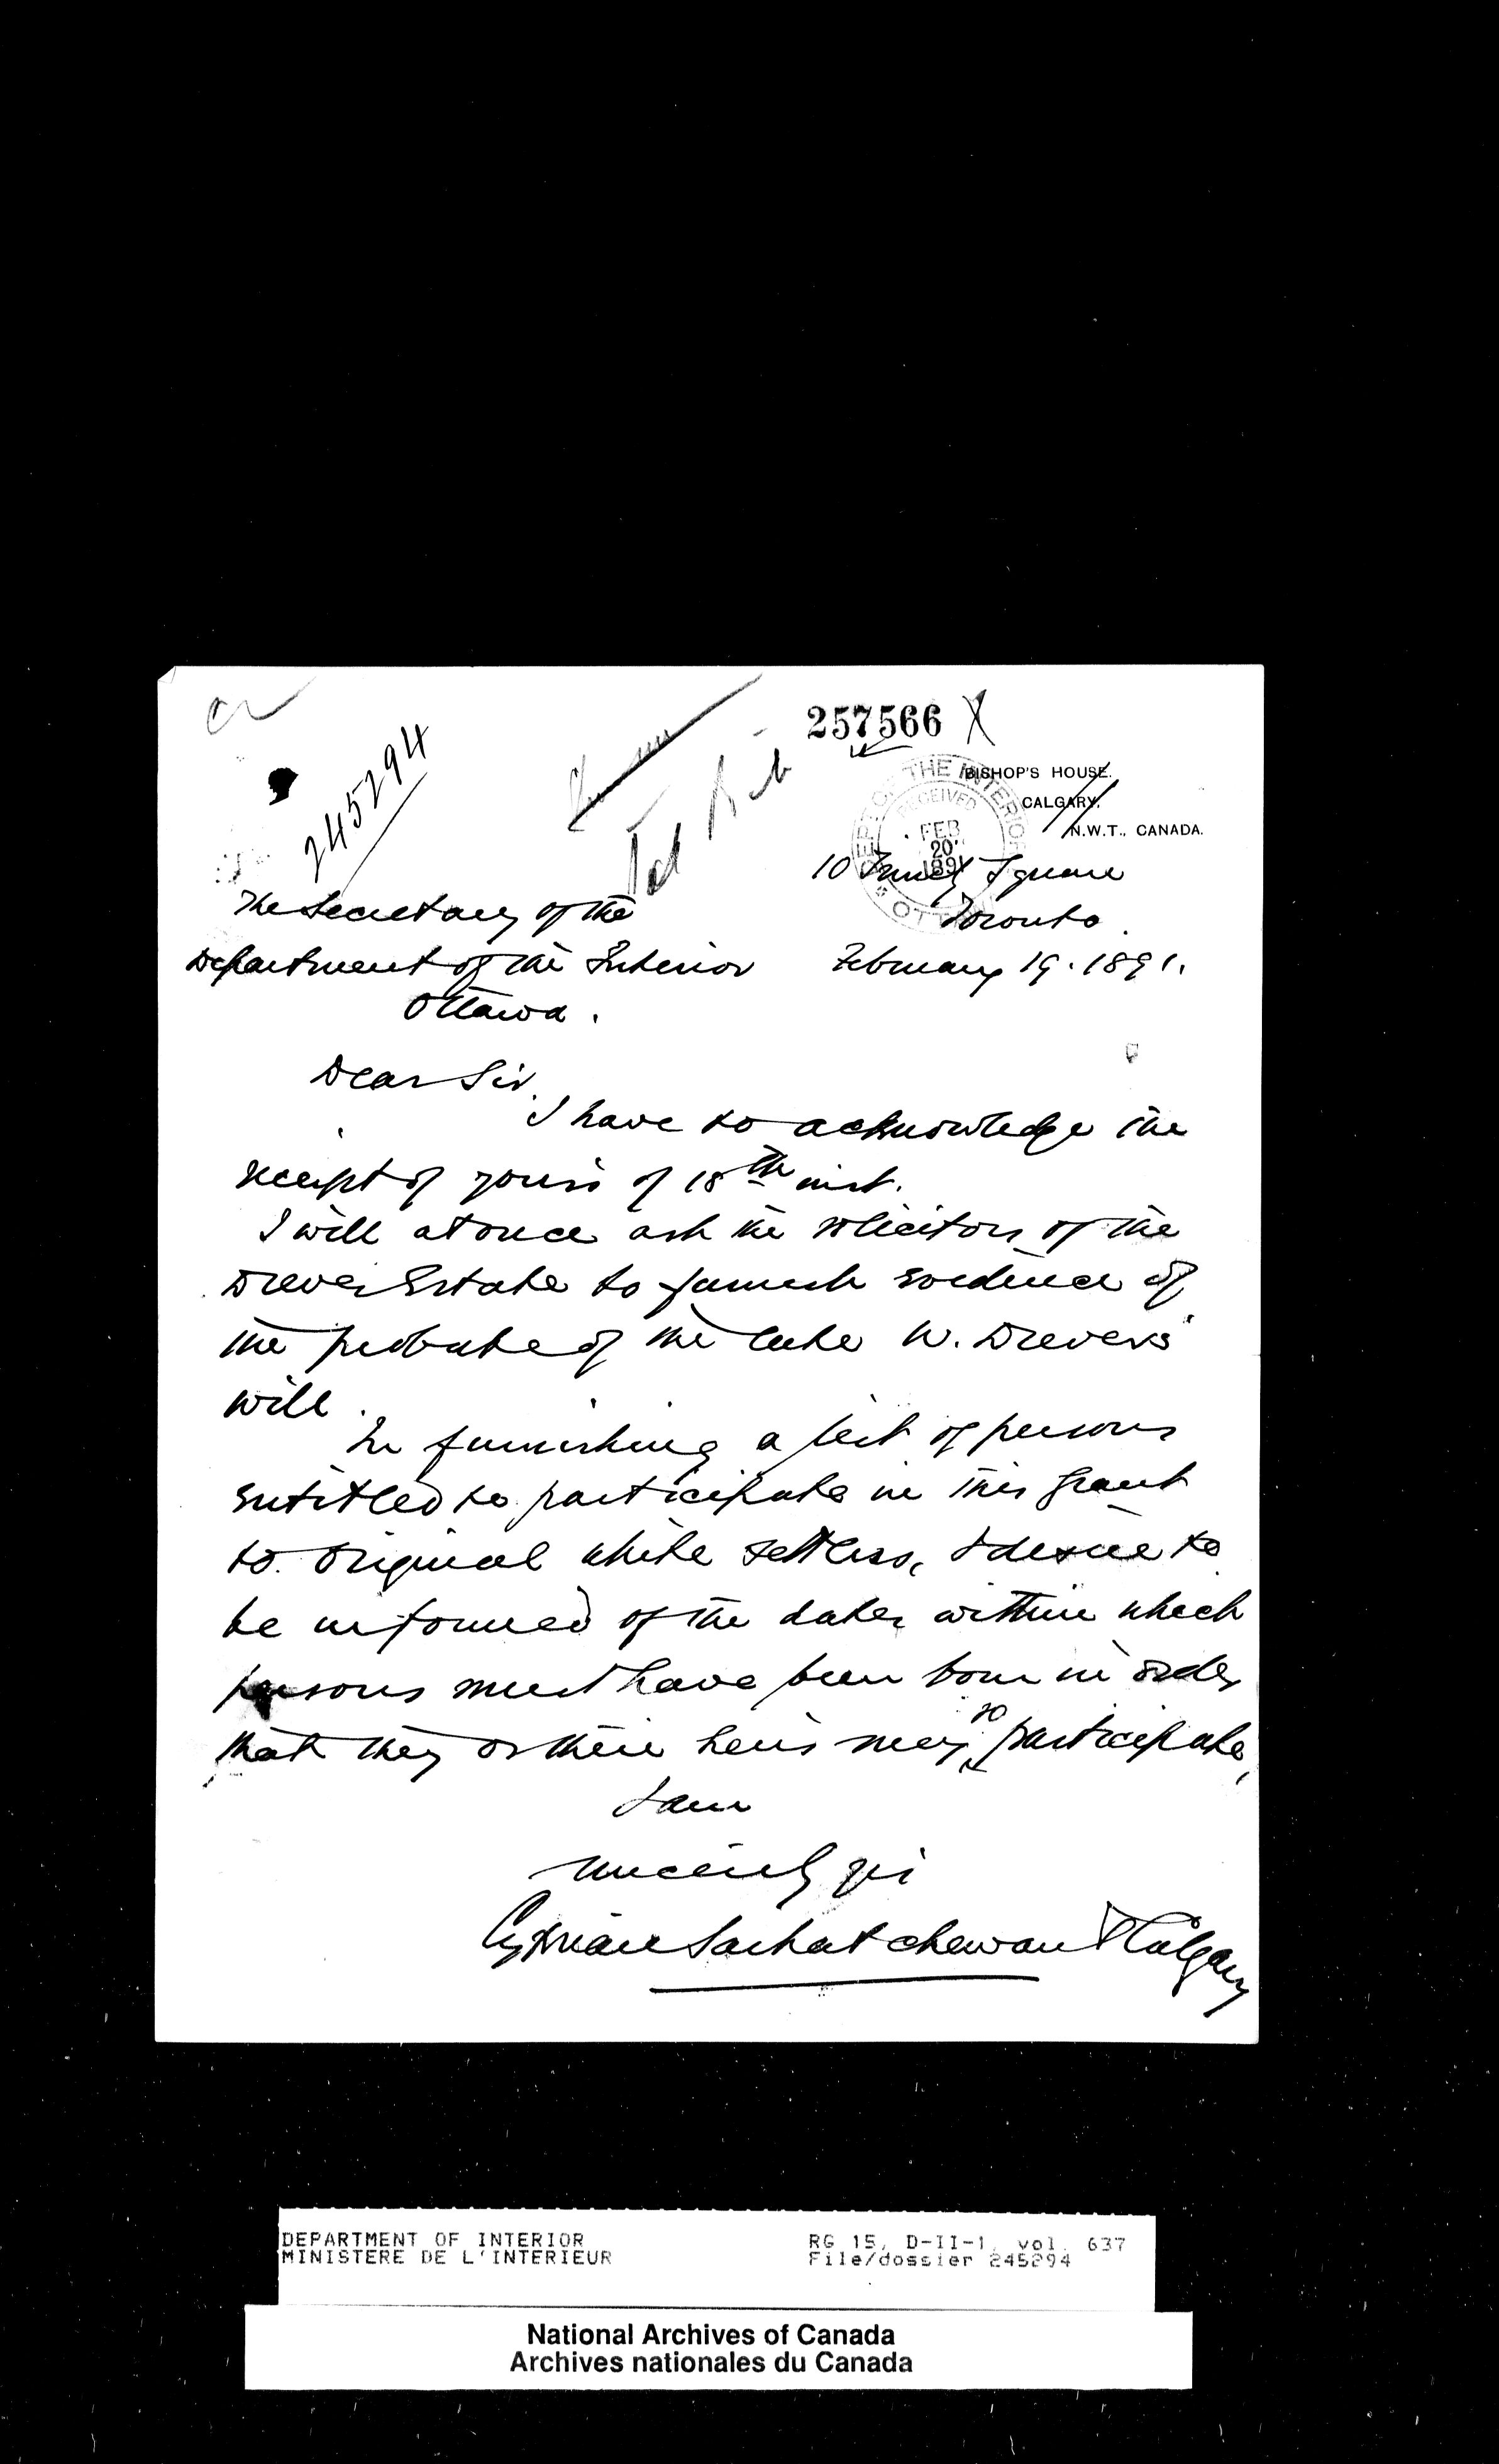 257566 X
245294
BISHOP'S HOUSE.
CALGARY.
N.W.T., CANADA.
DEPT. OF THE INTERIOR
RECEIVED
FEB
20
1891
OTTAWA
10 Trinity Square
Toronto.
The Secretary of the
Department of the Interior February 19. 1891.
Ottawa.
Dear Sir,
I have to acknowledge the
receipt of yours of 18th inst.
I will at once ask the solicitors of the
Drever Estate to furnish evidence of
the probate of the late W. Drever's
will.
In furnishing a list of persons
entitled to participate in this grant
to original white settlers, I desire to
be informed of the dates within which
persons must have been born in order
that they or their heirs may so participate,
I am
sincerely yrs
Cyprian Saskatchewan & Calgary
DEPARTMENT OF INTERIOR RG 15, D-II-1, vol. 637
MINISTERE DE L'INTERIEUR File/dossier 245294
National Archives of Canada
Archives nationales du Canada